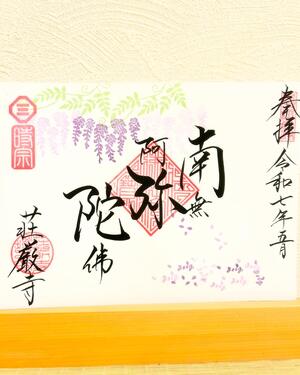 奉拝 令和七年五月
南無
阿弥
陀佛
荘厳寺
時宗